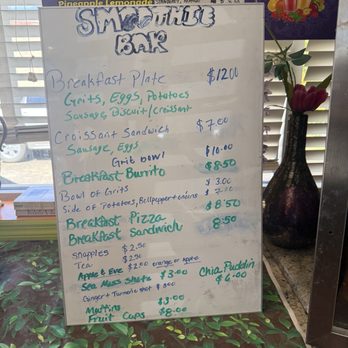 Pineapple Lemonade
SMOOTHIE
BAR
Breakfast Plate $12.00
Grits, Eggs, Potatoes
Sausage, Biscuit/Croissant
Croissant Sandwich $7.00
Sausage, Eggs
Grit bowl $10.00
Breakfast Burrito $8.50
Bowl of Grits $3.00
Side of Potatoes, Bellpepper + onions $7.00
Breakfast Pizza $8.50
Breakfast Sandwich 8.50
Snapples $2.50
Tea $2.50
Apple & Eve $2.00 orange or apple
Sea Moss Shots $3.00
Ginger + Turmeric shot $3.00
Chia Puddin
$6.00
Muffins $3.00
Fruit Cups $8.00